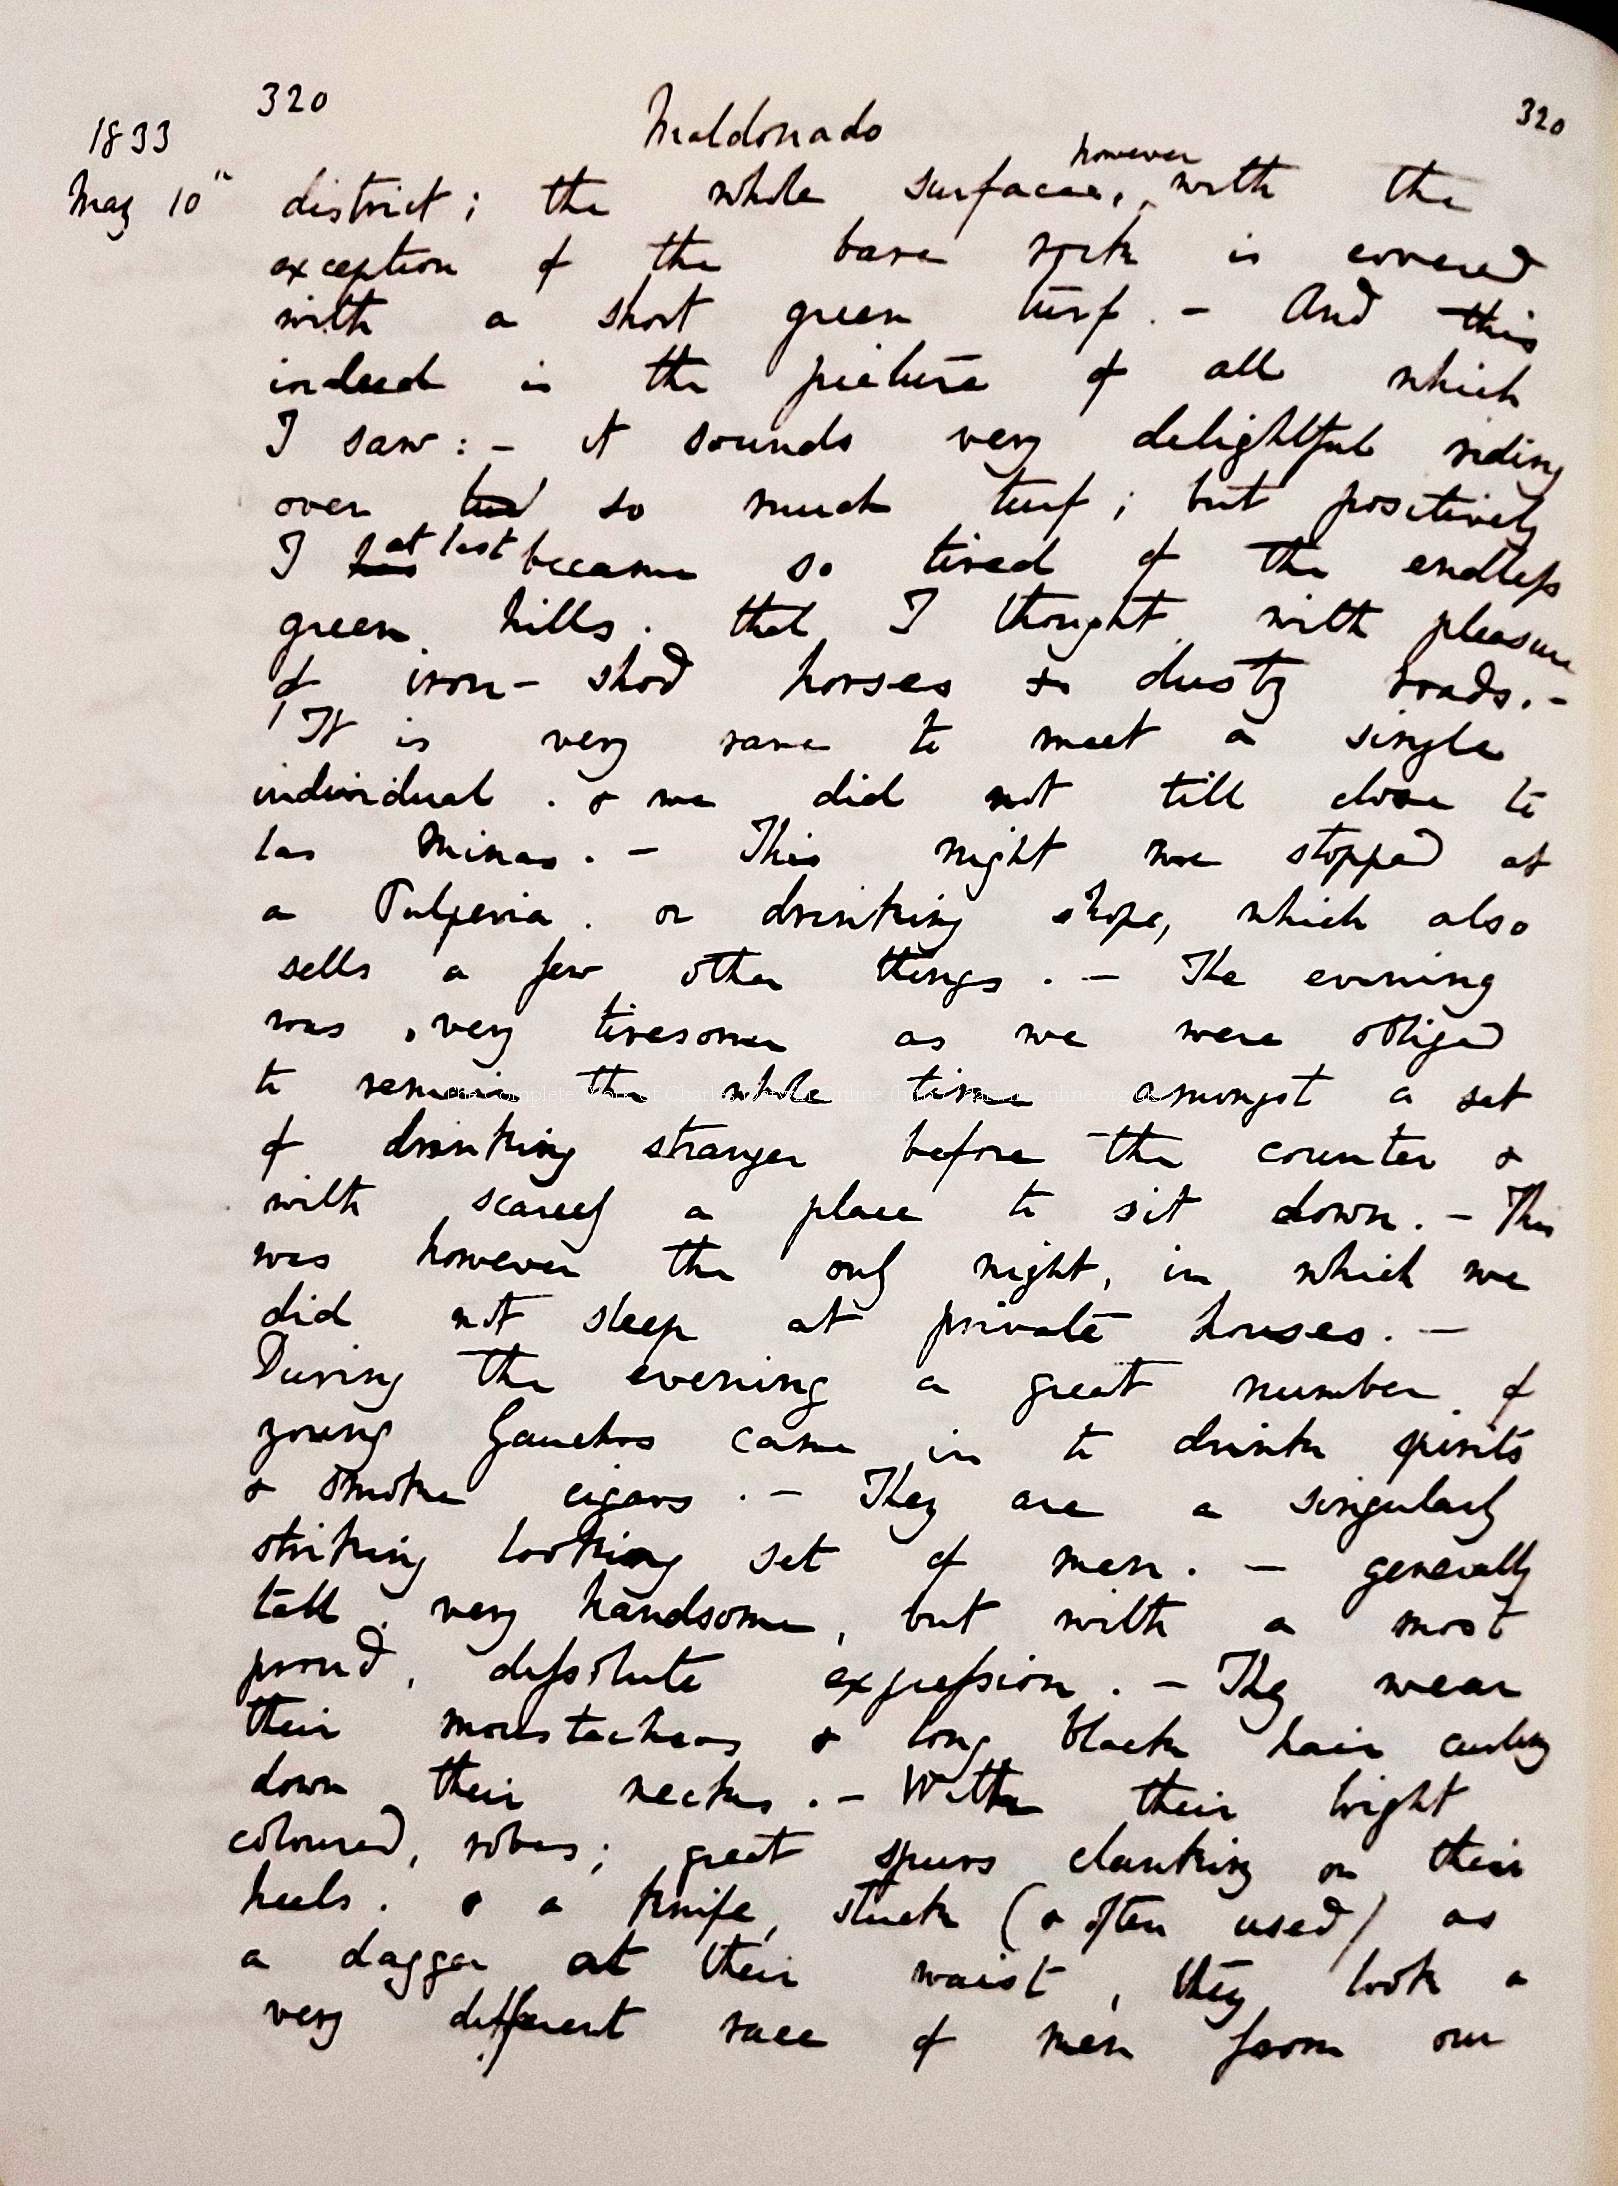 320 Maldonado 320
1833
however
May 10th district; the whole surface, with the
exception of the bare rock is covered
with a short green turf. — And this
indeed is the picture of all which
I saw: — it sounds very delightful riding
over so much turf; but positively
at last
I has became so tired of the endless
green hills. that I thought with pleasure
of iron-shod horses & dusty roads. —
It is very rare to meet a single
individual. & we did not till close to
las Minas. — This night we stopped at
a Pulperia. or drinking shope, which also
sells a few other things. — The evening
was, very tiresome as we were obliged
to remain the whole time amongst a set
of drinking stranger before the counter &
with scarcely a place to sit down. — This
was however the only night, in which we
did not sleep at private houses. —
During the evening a great number of
young Gauchos came in to drink spirits
& smoke cigars. — They are a singularly
striking looking set of men. — generally
tall, very handsome, but with a most
proud, dissolute expression. — They wear
their moustaches & long black hair curling
down their necks. — With their bright
coloured, robes; great spurs clanking on their
heels. & a knife, stuck (& often used) as
a dagger at their waist, they look a
very different race of men from our